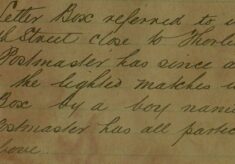 Letter Box referred to
Street close to
Postmaster has since
the lighted matches
Box by a boy name
Postmaster has all partic
above